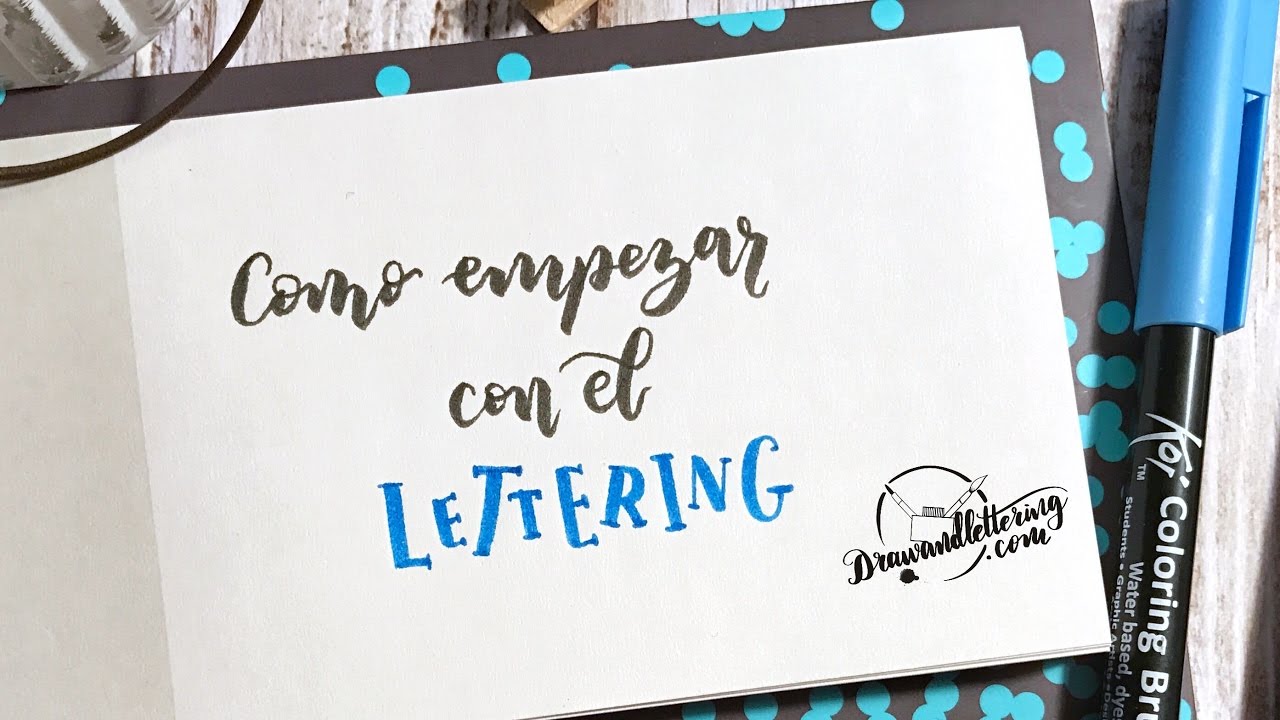 Como empezar
con el
LETTERING
Drawandlettering
.com
Koi Coloring Bru
TM
Water based, dye
Students • Graphic Artists • Des